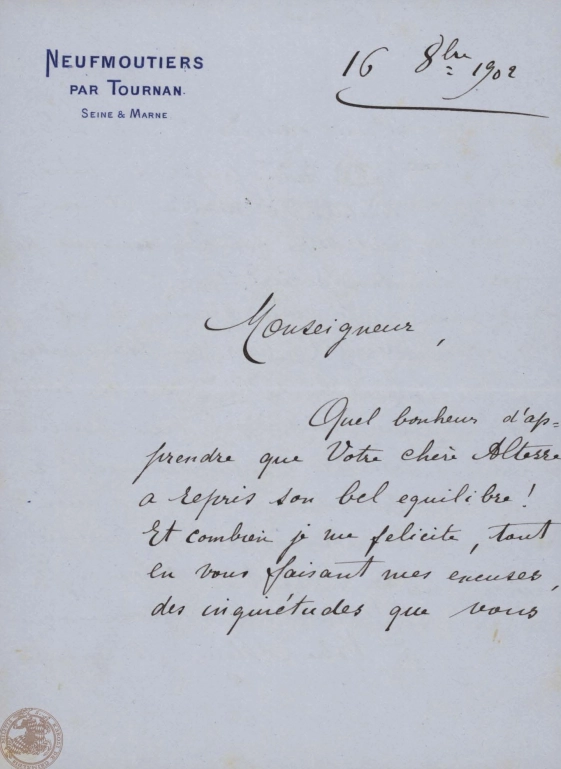 NEUFMOUTIERS
PAR TOURNAN.
SEINE & MARNE
16 8bre 1902
Monseigneur,
Quel bonheur d'ap=
prendre que Votre chère Altesse
a repris son bel equilibre!
Et combien je me felicite, tout
en vous faisant mes excuses,
des inquiétudes que vous